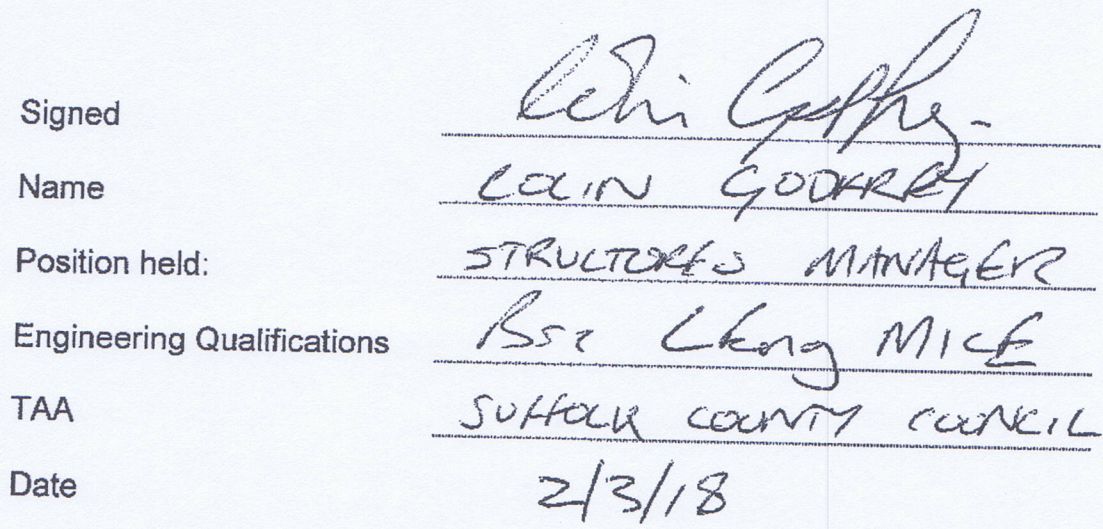 Signed Colin Godfrey
Name COLIN GODFREY
Position held: STRUCTURES MANAGER
Engineering Qualifications BSc CEng MICE
TAA SUFFOLK COUNTY COUNCIL
Date 2/3/18